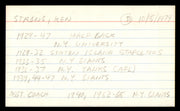 STRONG, KEN (B) 10/5/1979
1926-47 HALF BACK
N.Y. UNIVERSITY
1929-32 STATEN ISLAND STAPLETONS
1933-35 N.Y. GIANTS
1936-37 N.Y. YANKS (AFL)
1939, 44-47 N.Y. GIANTS
ASST. COACH 1940, 1962-65 N.Y. GIANTS